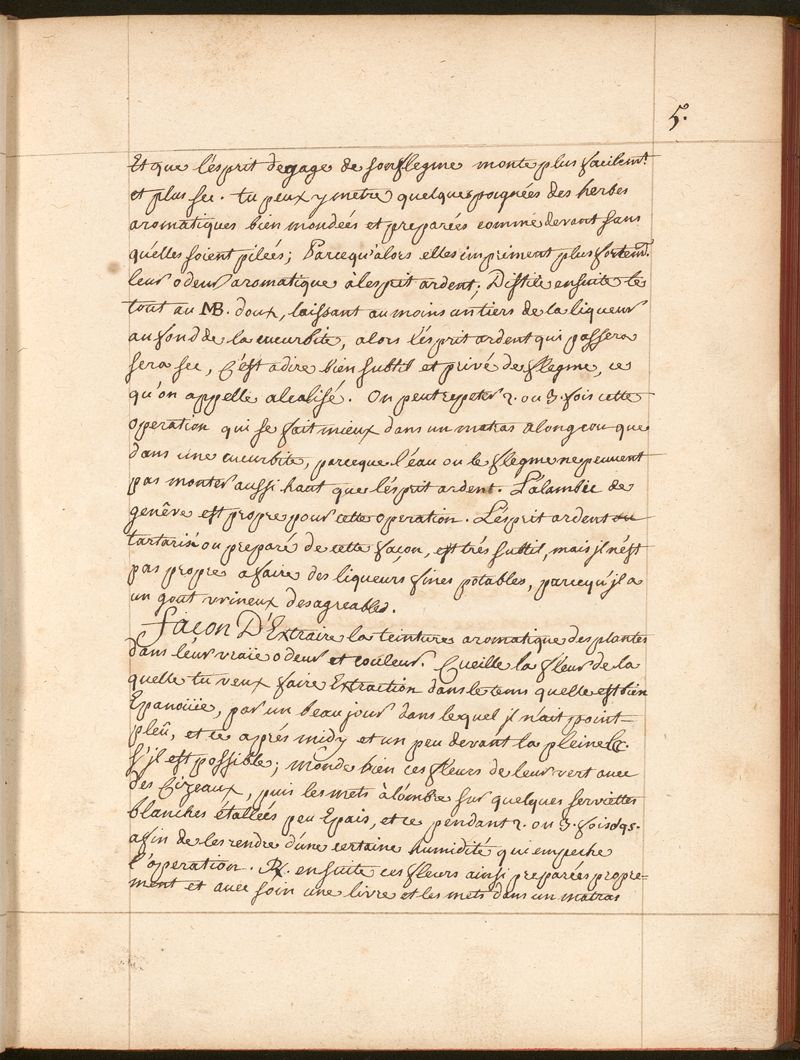 5.
Et que l'ésprit degagé de son flegme monte plus facilem.t
et plus sec. tu peux y metre quelques poignées des herbes
aromatiques bien mondeés et preparées comme devant sans
qu'elles soient pilées; Parcequ'alors elles impriment plus fortem.t
leur odeur aromatique à l'esprit ardent; Distile ensuite le
tout au MB. doux, laissant au moins un tiers de la liqueur
au fond de la cucurbite, alors l'ésprit ardent qui passera
sera sec, C'est a dire bien subtil et privé de flegme, ce
qu'on appelle alcalisé. On peut repeter 2. ou 3. fois cette
operation qui se fait mieux dans un matras a long cou que
dans une cucurbite, parceque l'eau ou le flegme ne peuvent
pas monter aussi haut que l'ésprit ardent. L'alambic de
genêve est propre pour cette operation. L'ésprit ardent ou
tartarisé ou preparé de cette façon, est trés subtil, mais jl n'ést
pas propre a faire des liqueurs fines potables, parcequ'jl a
un gout vrineux desagreable.
façon D'Extraire la teinture aromatique des plantes
dans leur vraïe odeur et couleur. Cueille la fleur de la
quelle tu veux faire Extraction dans le tems quelle est bien
Epanoüie, par un beau jour dans lequel jl n'ait point
pleû, et ce aprés midy et un peu devant la pleine
s'jl est possible; monde bien ces fleurs de leur vert avec
des Cizeaux, puis les mets à l'ombre sur quelques serviettes
blanches étallées peu Epais, et ce pendant 2. ou 3. fois
afin de les rendre d'une certaine humidité qui empeche
l'operation. Rx. ensuite ces fleurs ainsi preparées propre=
ment et avec soin une livre et les mets dans un matras